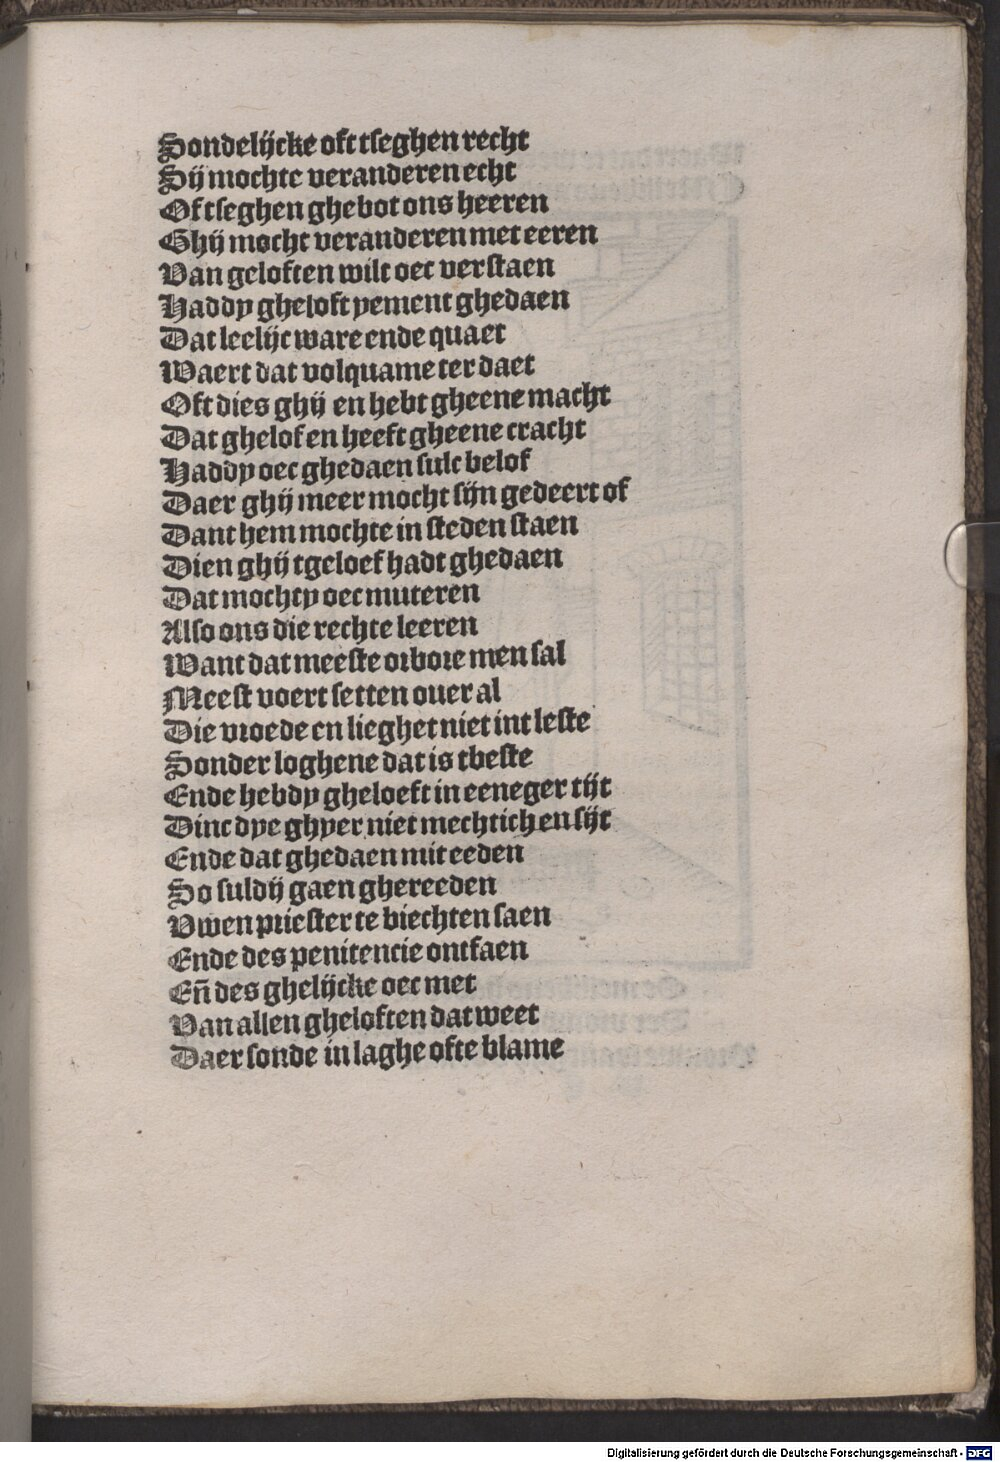 Sondelijcke oft tseghen recht
Sij mochte veranderen echt
Of tseghen ghebot ons heeren
Ghij mocht veranderen met eeren
Van geloften wilt oec verstaen
Haddy gheloft yement ghedaen
Dat leelijc ware ende quaet
Waert dat volquame ter daet
Oft dies ghij en hebt gheene macht
Dat ghelof en heeft gheene cracht
Haddy oec ghedaen sulc belof
Daer ghij meer mocht sijn gedeert of
Dant hem mochte in steden staen
Dien ghij tgeloef hadt ghedaen
Dat mochty oec muteren
Also ons die rechte leeren
Want dat meeste orbore men sal
Meest voert setten ouer al
Die vroede en lieghet niet int leste
Sonder loghene dat is tbeste
Ende hebdy gheloeft in eeneger tijt
Dinc dye ghyer niet mechtich en sijt
Ende dat ghedaen mit eeden
So suldij gaen ghereeden
Uwen priester te biechten saen
Ende des penitencie ontfaen
Eñ des ghelijcke oec met
Van allen gheloften dat weet
Daer sonde in laghe ofte blame
Digitalisierung gefördert durch die Deutsche Forschungsgemeinschaft - DFG